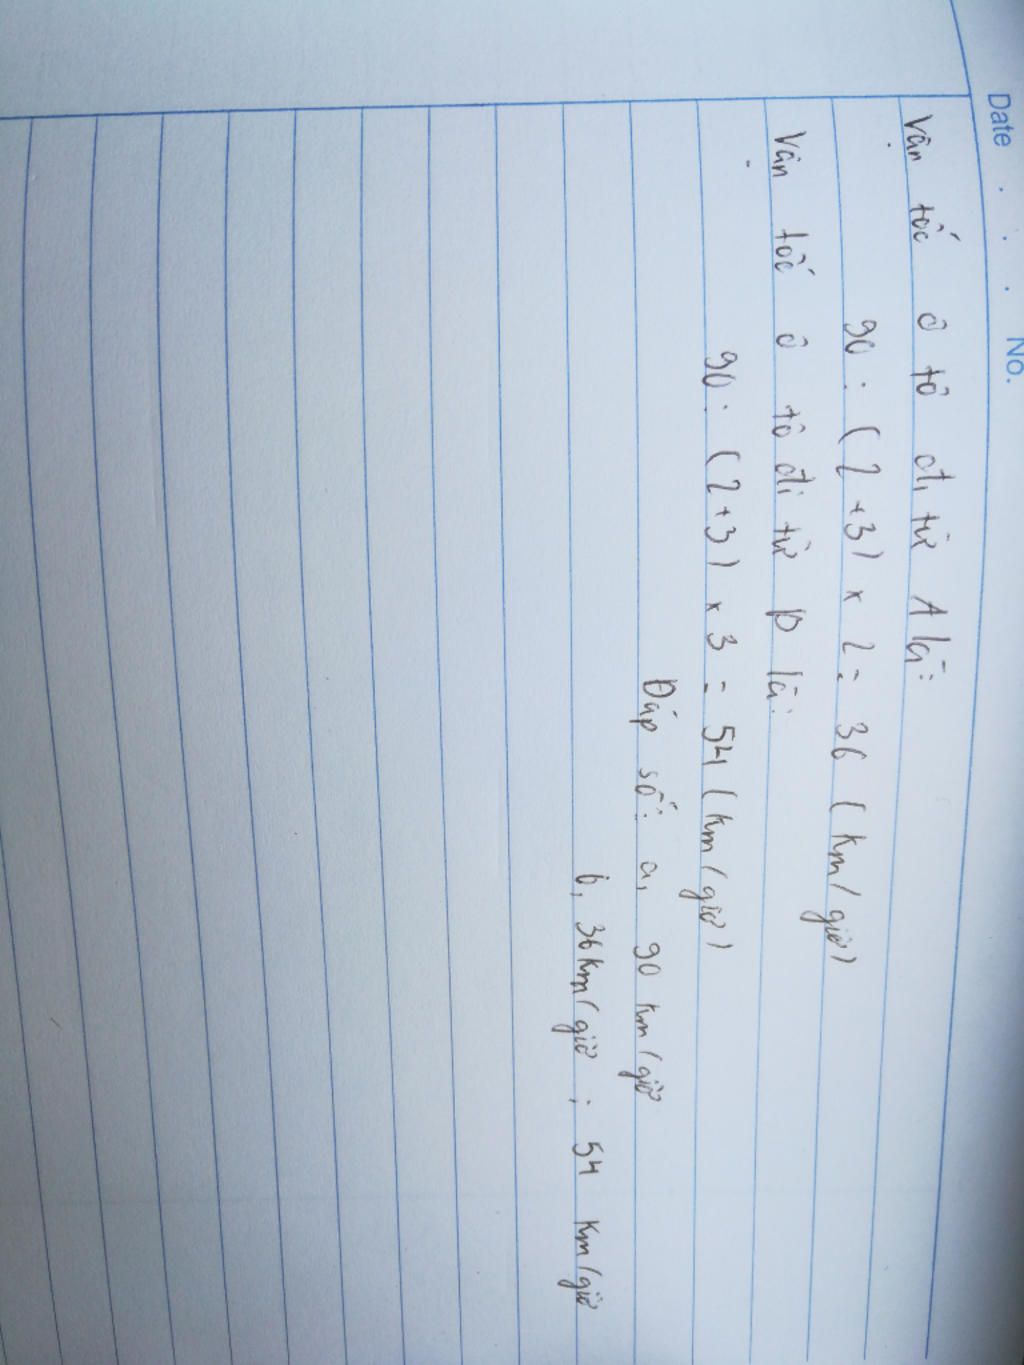 Date . . . No.
Vận tốc ô tô đi từ A là:
90 : (2 + 3) x 2 = 36 (km/giờ)
Vận tốc ô tô đi từ B là:
90 : (2+3) x 3 = 54 (km/giờ)
Đáp số: a, 90 km/giờ
b, 36 km/giờ ; 54 km/giờ